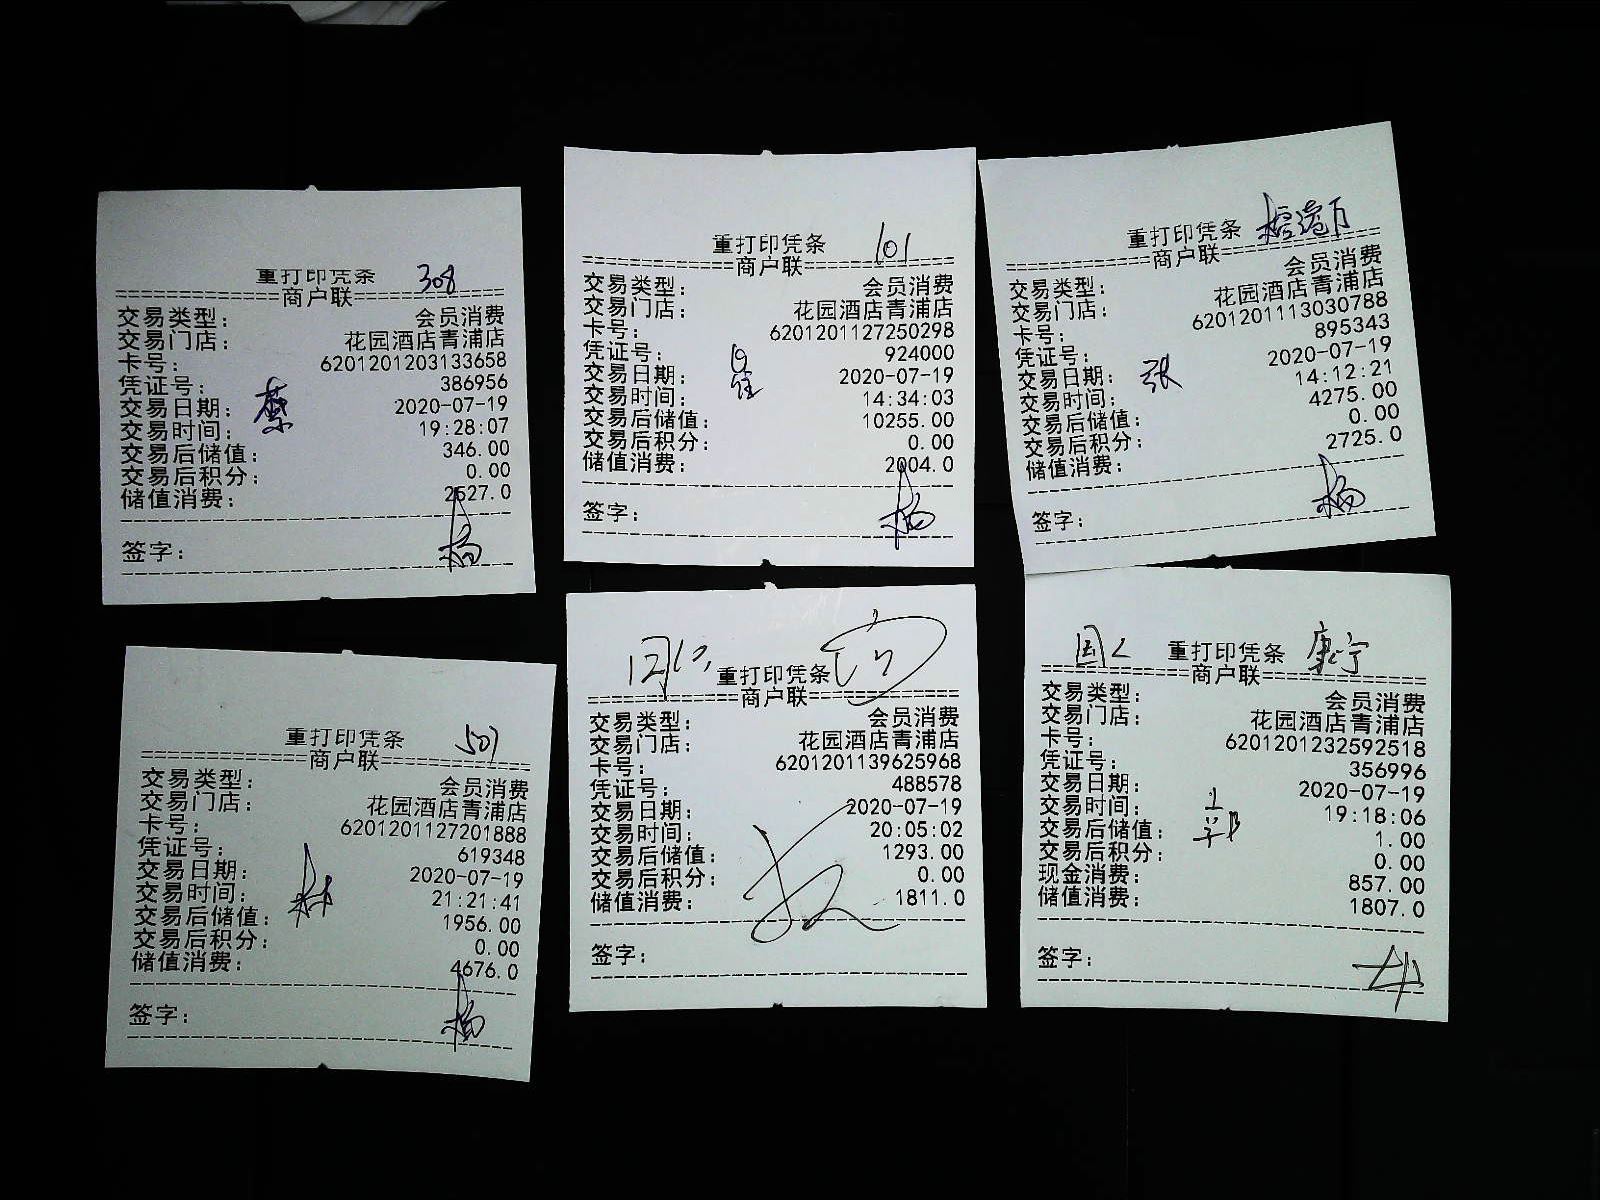 重打印凭条 308
==商户联==
交易类型： 会员消费
交易门店： 花园酒店青浦店
卡号： 6201201203133658
凭证号： 386956
交易日期： 2020-07-19
蔡
交易时间： 19:28:07
交易后储值： 346.00
交易后积分： 0.00
储值消费： 2527.0
签字： 杨
重打印凭条 101
==商户联==
交易类型： 会员消费
交易门店： 花园酒店青浦店
卡号： 6201201127250298
凭证号： 924000
交易日期： 2020-07-19
交易时间： 14:34:03
交易后储值： 10255.00
交易后积分： 0.00
储值消费： 2004.0
签字： 杨
重打印凭条
==商户联==
交易类型： 会员消费
交易门店： 花园酒店青浦店
卡号： 6201201113030788
凭证号： 895343
交易日期： 2020-07-19
张
交易时间： 14:12:21
交易后储值： 4275.00
交易后积分： 0.00
储值消费： 2725.0
签字： 杨
重打印凭条 507
==商户联==
交易类型： 会员消费
交易门店： 花园酒店青浦店
卡号： 6201201127201888
凭证号： 619348
交易日期： 2020-07-19
交易时间： 21:21:41
林
交易后储值： 1956.00
交易后积分： 0.00
储值消费： 4676.0
签字： 杨
重打印凭条
==商户联==
交易类型： 会员消费
交易门店： 花园酒店青浦店
卡号： 6201201139625968
凭证号： 488578
交易日期： 2020-07-19
交易时间： 20:05:02
交易后储值： 1293.00
交易后积分： 0.00
储值消费： 1811.0
签字：
重打印凭条 康宁
==商户联==
交易类型： 会员消费
交易门店： 花园酒店青浦店
卡号： 6201201232592518
凭证号： 356996
交易日期： 2020-07-19
交易时间： 19:18:06
交易后储值： 1.00
交易后积分： 0.00
现金消费： 857.00
储值消费： 1807.0
签字：